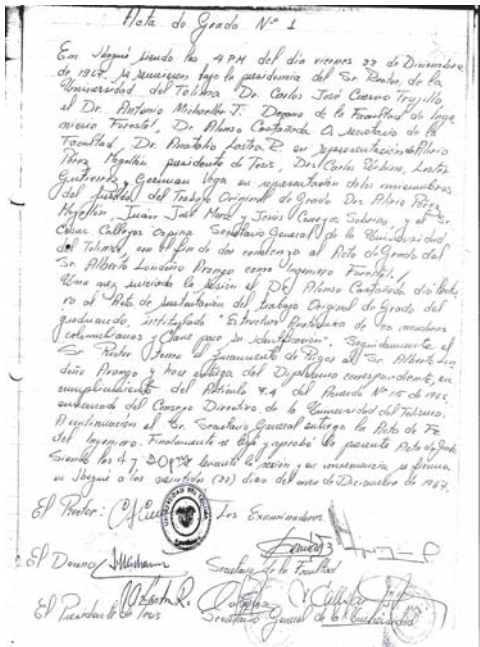 Acta de Grado Nº 1
En Ibagué siendo las 4 PM del día viernes 22 de Diciembre
de 1967, se reunieron bajo la presidencia del Sr. Rector, de la
Universidad del Tolima Dr. Carlos José Cuervo Trujillo,
el Dr. Antonio J. Decano de la Facultad de Inge
niería Forestal, Dr. Alonso Castañeda O. secretario de la
Facultad, Dr. Anatolio Lastra R. en representación de Alirio
Pérez Mogollón presidente de Tesis, Drs. Carlos Urbina, Lester
Gutierrez y German Vega en representación de los miembros
del Jurado del Trabajo Original de Grado Drs. Alirio Pérez
Mogollón, Juan José Mora y Jesús Conejos Sobrino, y el Sr.
Cesar Callejas Ospina Secretario General de la Universidad
del Tolima, con el fin de dar comienzo al Acto de Grado del
Sr. Alberto Londoño Arango como Ingeniero Forestal.
Una vez iniciada la sesión el Dr. Alonso Castañeda dió lectu
ra al Acta de sustentación del trabajo Original de Grado del
graduando, intitulado "Estructura de 20 maderas
colombianas y Clave para su identificación". Seguidamente el
Sr. Rector tomó el juramento de Rigor al Sr. Alberto Lon
doño Arango e hace entrega del Diploma correspondiente, en
cumplimiento del Artículo del Acuerdo Nº 15 de 1966,
emanado del Consejo Directivo de la Universidad del Tolima.
A continuación el Sr. Secretario General entrega la Acta de Fe
del Ingeniero. Finalmente se leyó y aprobó la presente Acta de Grado
Siendo las se levanta la sesión y en consecuencia se firma
en Ibagué a los veintidos (22) días del mes de Diciembre de 1967.
El Rector: Los Examinadores.
UNIVERSIDAD DEL TOLIMA
El Decano
Secretario de la Facultad
El Presidente de Tesis Secretario General de la Universidad